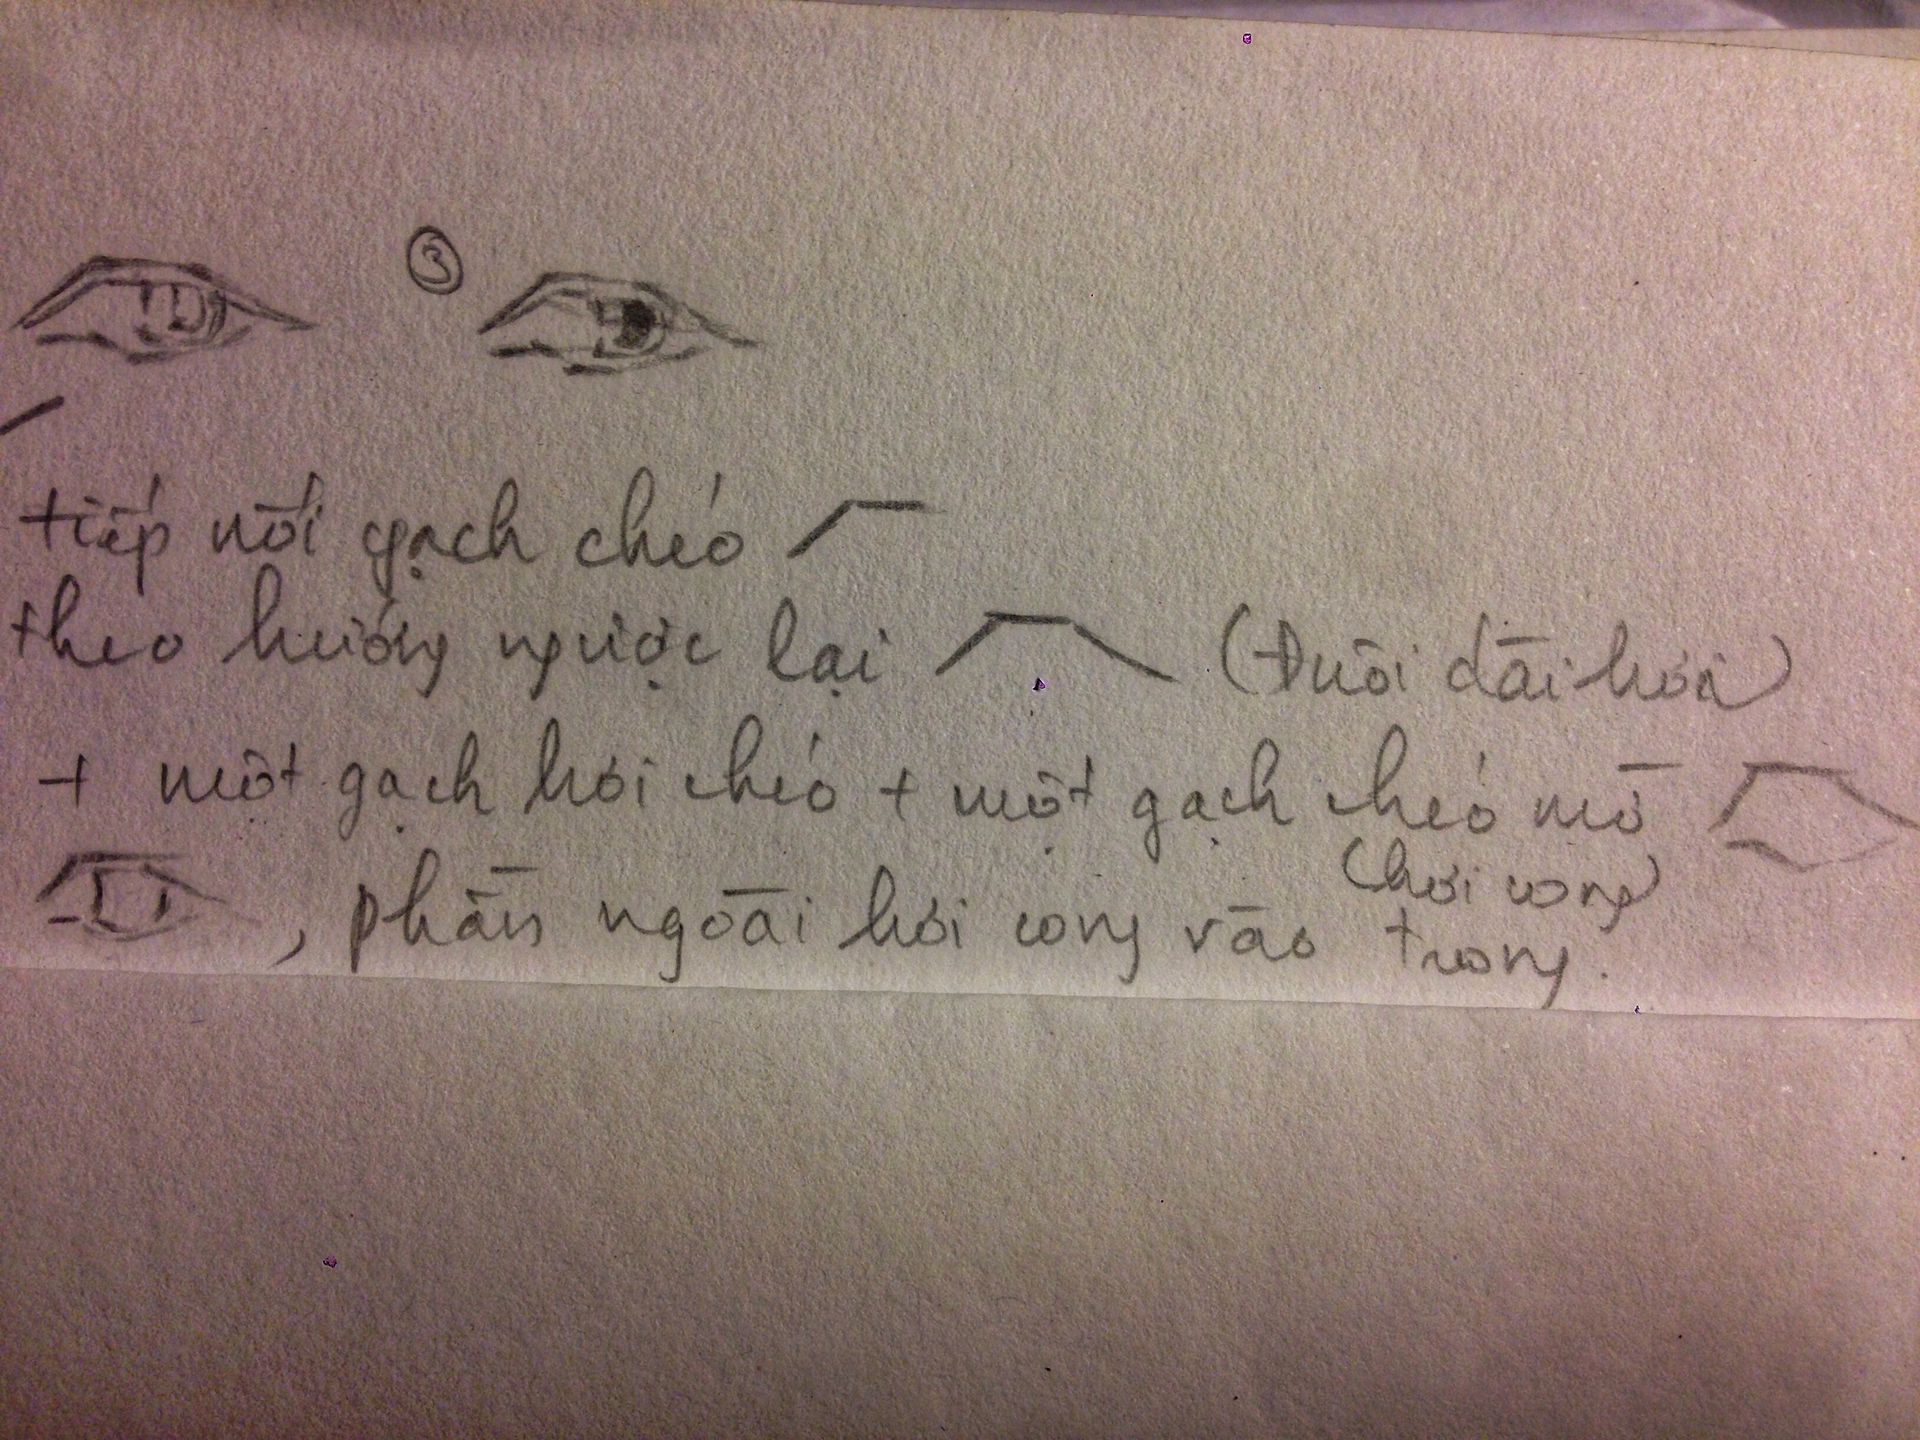 3
tiếp nối gạch chéo
theo hướng ngược lại (Đuôi dài hơn)
+ một gạch hơi chéo + một gạch chéo mờ
(hơi cong)
, phần ngoài hơi cong vào trong.